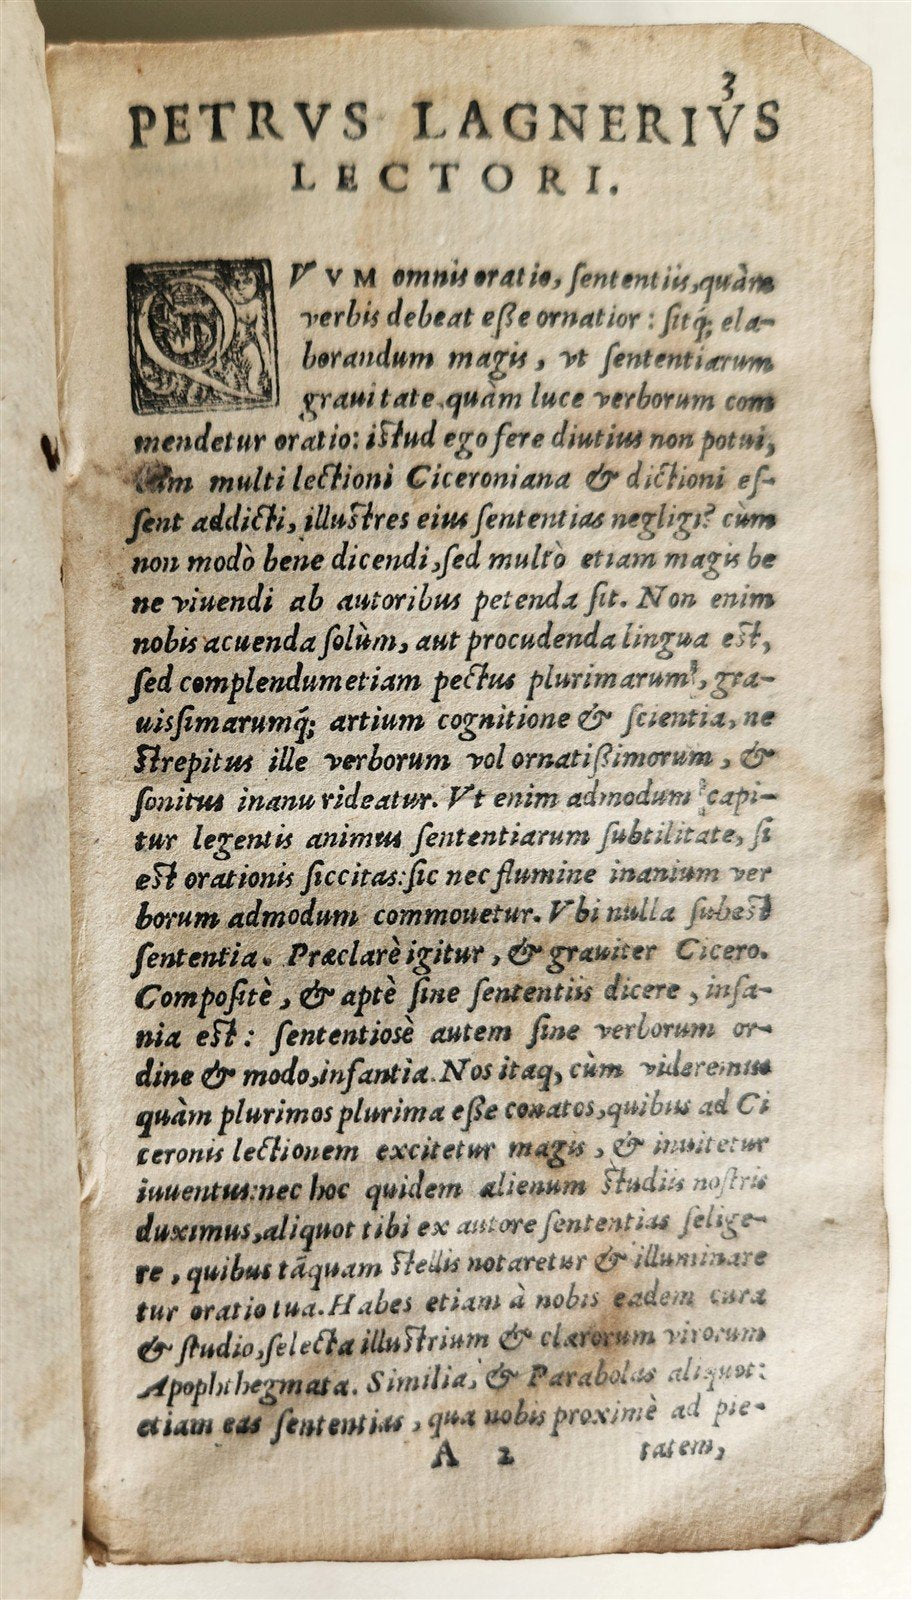 3
PETRVS LAGNERIVS
LECTORI.
QVVM omnis oratio, ſententiis, quàm
verbis debeat eſſe ornatior: ſitq́; ela-
borandum magis, vt ſententiarum
grauitate quàm luce verborum com
mendetur oratio: iſtud ego fere diutius non potui,
multi lectioni Ciceroniana & dictioni eſ-
ſent addicti, illuſtres eius ſententias negligi? cùm
non modò bene dicendi, ſed multò etiam magis be
ne viuendi ab autoribus petenda ſit. Non enim
nobis acuenda ſolùm, aut procudenda lingua eſt,
ſed complendum etiam pectus plurimarum, gra-
uiſſimarumq́; artium cognitione & ſcientia, ne
ſtrepitus ille verborum vol ornatiſſimorum, &
ſonitus inanu rideatur. Vt enim admodum capi-
tur legentis animus ſententiarum ſubtilitate, ſi
eſt orationis ſiccitas: ſic nec flumine inanium ver
borum admodum commouetur. Vbi nulla ſubeſt
ſententia. Præclarè igitur, & grauiter Cicero.
Compoſitè, & aptè ſine ſententiis dicere, inſa-
nia eſt: ſententioſè autem ſine verborum or-
dine & modo, infantia. Nos itaq, cùm videremus
quàm plurimos plurima eſſe conatos, quibus ad Ci
ceronis lectionem excitetur magis, & inuitetur
iuuentus: nec hoc quidem alienum ſtudiis noſtris
duximus, aliquot tibi ex autore ſententias ſelige-
re, quibus tãquam ſtellis notaretur & illuminare
tur oratio tua. Habes etiam à nobis eadem cura
& ſtudio, ſelecta illuſtrium & clarorum virorum
Apophthegmata. Similia, & Parabolas aliquot:
etiam eas ſententias, qua nobis proximè ad pie-
A 2 tatem,